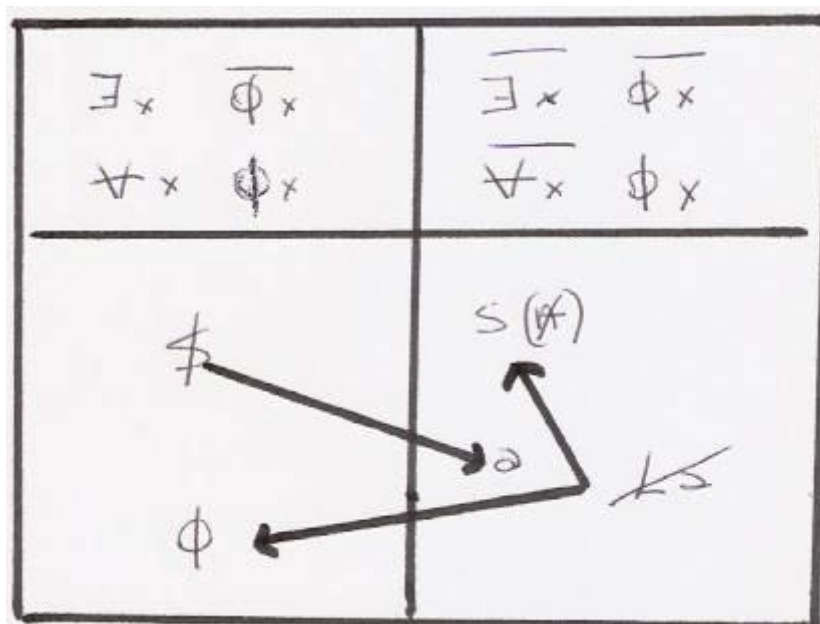 ∃x Φ̅x̅ ∃̅x̅ Φ̅x̅
∀x Φx ∀̅x̅ Φx
$ S(Ⱥ)
a L̸S̸
Φ